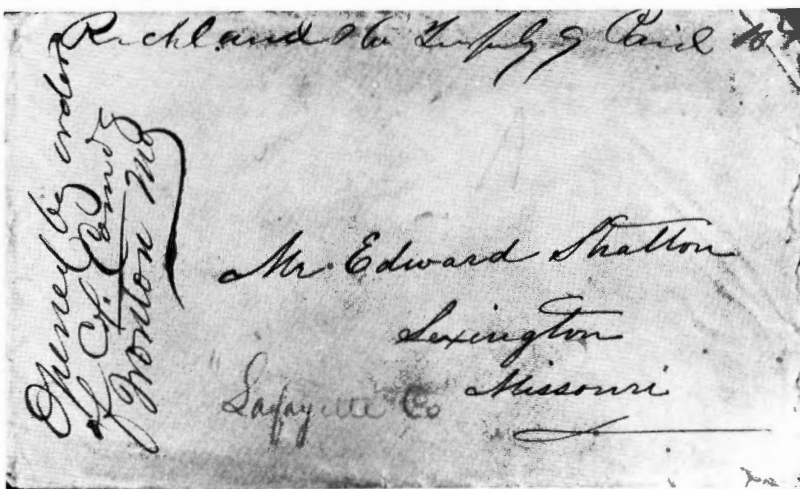 Richland Mo July 9 Paid 10
Opened by order
of Cf Comdg
Ironton Mo
Mr. Edward Stratton
Lexington
Missouri
Lafayette Co